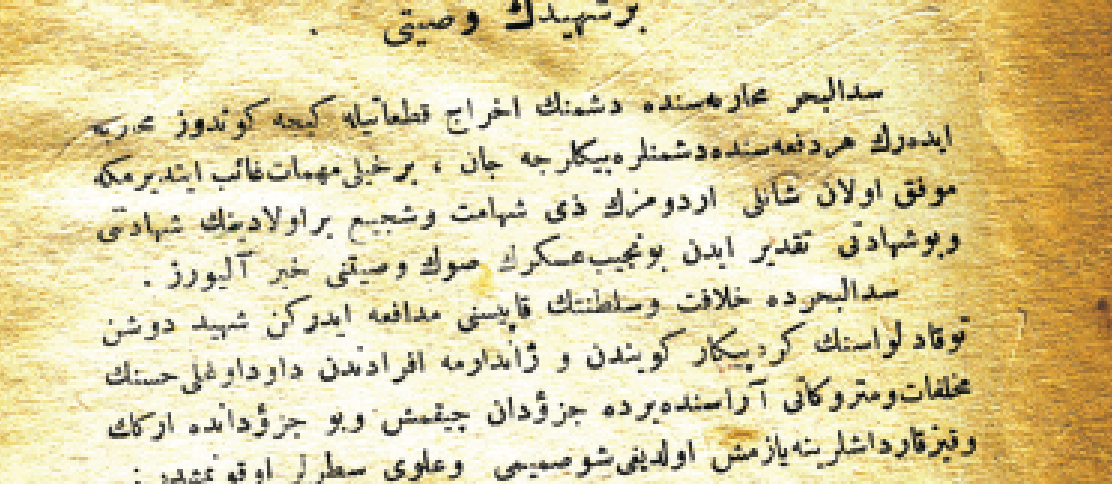 برشهيدك وصيتى .
سدالبحر محاربه‌سنده دشمنك اخراج قطعاتيله كيجه كوندوز محاربه
ايده‌رك هردفعه‌سنده دشمنلره بيكلرجه جان ، برخيلى مهمات غائب ايتديرمكه
موفق اولان شانلى اردومزك ذى شهامت وشجيع براولادينك شهادتى
وبوشهادتى تقدير ايدن بونجيب عسكرك صوك وصيتنى خبر آليورز .
سدالبحرده خلافت وسلطنتك قاپيسنى مدافعه ايدركن شهيد دوشن
توقاد لواسنك كويندن و ژاندارمه افرادندن داوداوغلى حسنك
مخلفات ومتروكاتى آراسنده برده جزؤدان چيقمش وبو جزؤدانده اركك
وقيزقارداشلرينه يازمش اولديغى شوصميمى وعلوى سطرلر اوقونمشدر :